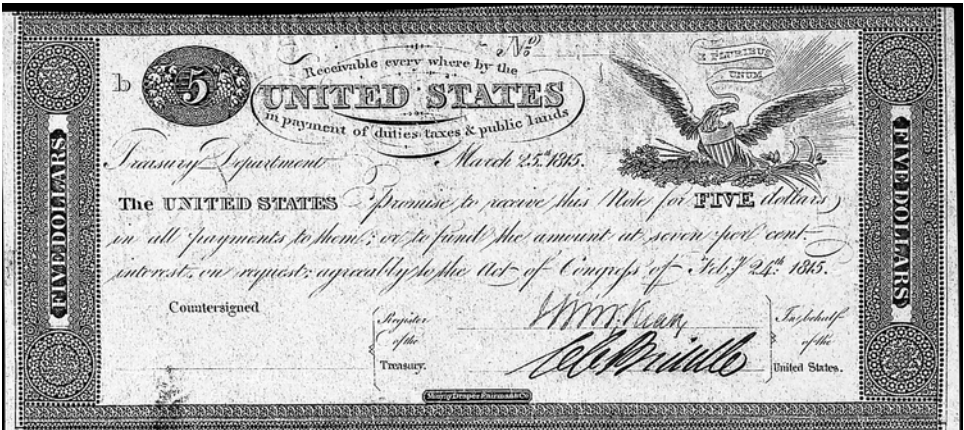 No
b
5
Receivable every where by the
UNITED STATES
in payment of duties taxes & public lands
E PLURIBUS
UNUM
Treasury Department March 25th. 1815.
The UNITED STATES Promise to receive this Note for FIVE dollars
in all payments to them; or to fund the amount at seven per cent.
interest, on request; agreeably to the Act of Congress of Feby. 24th. 1815.
Countersigned
Register
of the
Treasury.
In behalf
of the
United States.
FIVE DOLLARS
FIVE DOLLARS
Murray Draper Fairman & Co